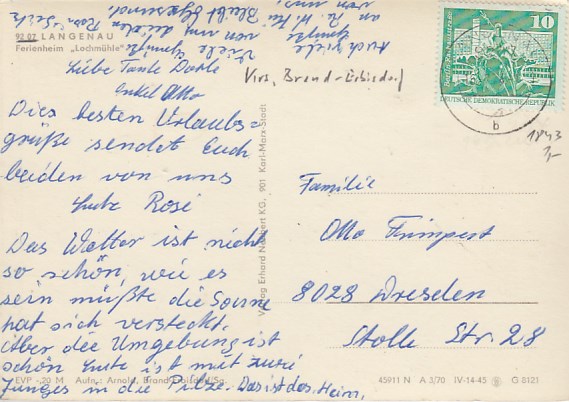 92 07 LANGENAU
Ferienheim „Lochmühle"
Liebe Tante Dorle
Onkel Otto
Dies besten Urlaubs=
grüße sendet Euch
beiden von uns
Lutz Rosi
Das Wetter ist nicht
so schön, wie es
sein müßte die Sonne
hat sich versteckt.
Aber die Umgebung ist
schön Lutz ist mit zwei
Jungs in die Pilze. Das ist das Heim,
Auch viele
Grüße
an
von
Bleibt
Viele
von uns
Grüße
Vws. Brand-Erbisdorf
10
DEUTSCHE DEMOKRATISCHE REPUBLIK
b
1843
1,-
Familie
Otto Trimpert
8028 Dresden
Stolle Str. 28
Verlag Erhard Neubert KG., 901 Karl-Marx-Stadt
EVP -,20 M Aufn.: Arnold, Brand-Erbisdorf/Sa.
45911 N A 3/70 IV-14-45 G 8121